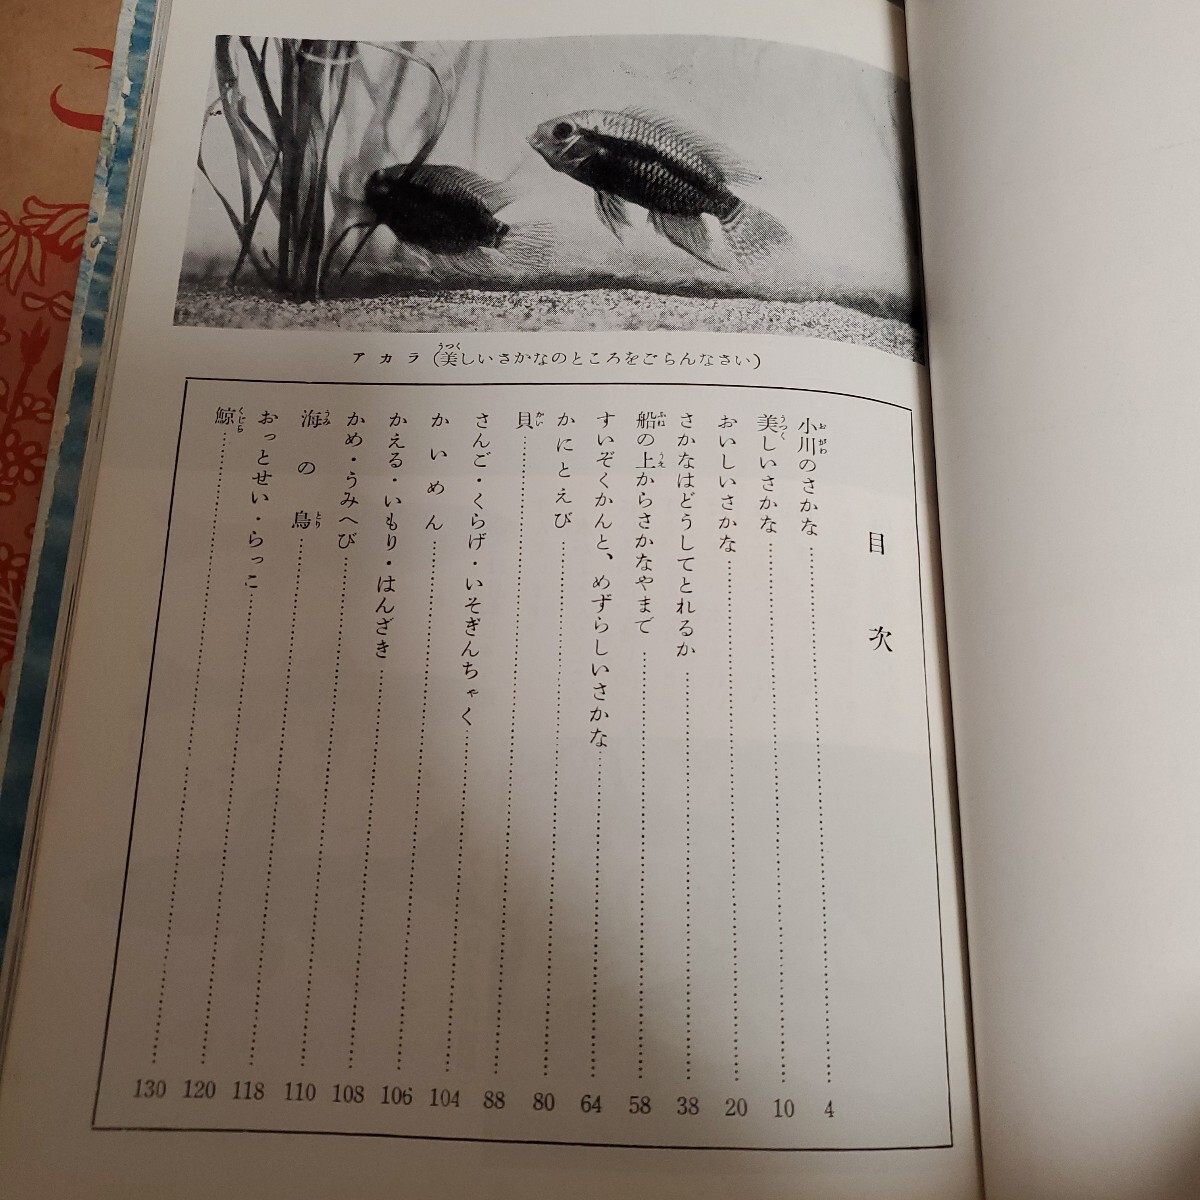 アカラ(美しいさかなのところをごらんなさい)
目次
小川のさかな……4
美しいさかな……10
おいしいさかな……20
さかなはどうしてとれるか……38
船の上からさかなやまで……58
すいぞくかんと、めずらしいさかな……64
かにとえび……80
貝……88
さんご・くらげ・いそぎんちゃく……104
かいめん……106
かえる・いもり・はんざき……108
かめ・うみへび……110
海の鳥……118
おっとせい・らっこ……120
鯨……130